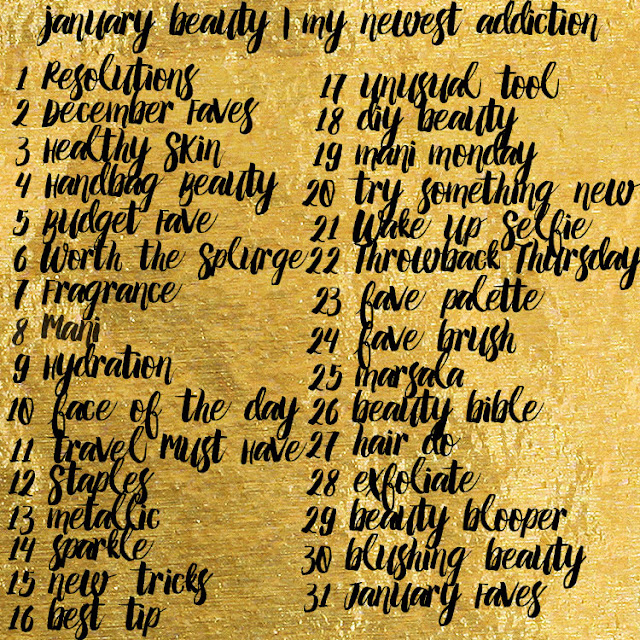 january beauty | my newest addiction
1 Resolutions
2 December Faves
3 Healthy Skin
4 Handbag Beauty
5 Budget Fave
6 Worth the Splurge
7 Fragrance
8 Mani
9 Hydration
10 face of the day
11 travel Must Have
12 Staples
13 metallic
14 sparkle
15 new tricks
16 best tip
17 unusual tool
18 diy beauty
19 mani monday
20 try something new
21 Wake Up Selfie
22 Throwback Thursday
23 fave palette
24 fave brush
25 marsala
26 beauty bible
27 hair do
28 exfoliate
29 beauty blooper
30 blushing beauty
31 January Faves